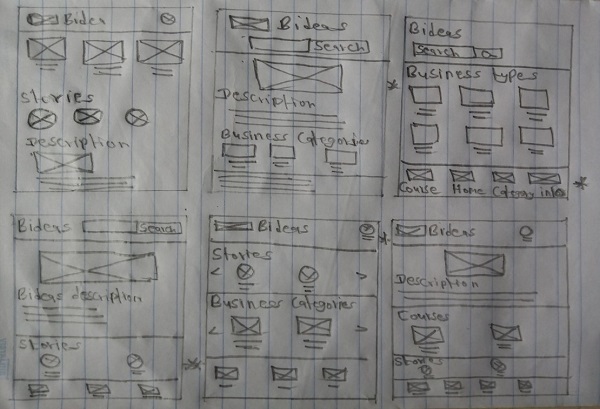 Bidea
Stories
Description
Bideas
Search
Description
Business Categories
Bideas
Search
Business types
Course Home Category info
Bideas Search
Bideas description
Stories
Bideas
Stories
< >
Business Categories
< >
Bideas
Description
Courses
Stories